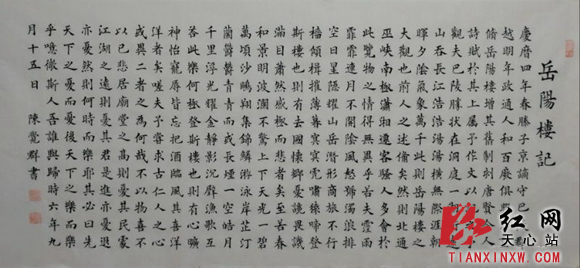 岳陽樓記
慶曆四年春滕子京謫守巴
越明年政通人和百廢俱興
脩岳陽樓增其舊制刻唐賢今人
詩賦於其上屬予作文以記之
觀夫巴陵勝狀在洞庭一湖
山吞長江浩浩湯湯橫無際涯朝
暉夕陰氣象萬千此則岳陽樓之
大觀也前人之述備矣然則北通
巫峽南極瀟湘遷客騷人多會於
此覽物之情得無異乎若夫霪雨
霏霏連月不開陰風怒號濁浪排
空日星隱耀山岳潛形商旅不行
檣傾楫摧薄暮冥冥虎嘯猿啼登
斯樓也則有去國懷鄉憂讒畏譏
滿目蕭然感極而悲者矣至若春
和景明波瀾不驚上下天光一碧
萬頃沙鷗翔集錦鱗游泳岸芷汀
蘭鬱鬱青青而或長煙一空皓月
千里浮光耀金靜影沉璧漁歌互
答此樂何極登斯樓也則有心曠
神怡寵辱皆忘把酒臨風其喜洋
洋者矣嗟夫予嘗求古仁人之心
或異二者之為何哉不以物喜不
以己悲居廟堂之高則憂其民處
江湖之遠則憂其君是進亦憂退
亦憂然則何時而樂耶其必曰先
天下之憂而憂後天下之樂而樂
乎噫微斯人吾誰與歸時六年九
月十五日 陳覺群書
红网
天心站
TIANXINXW.COM